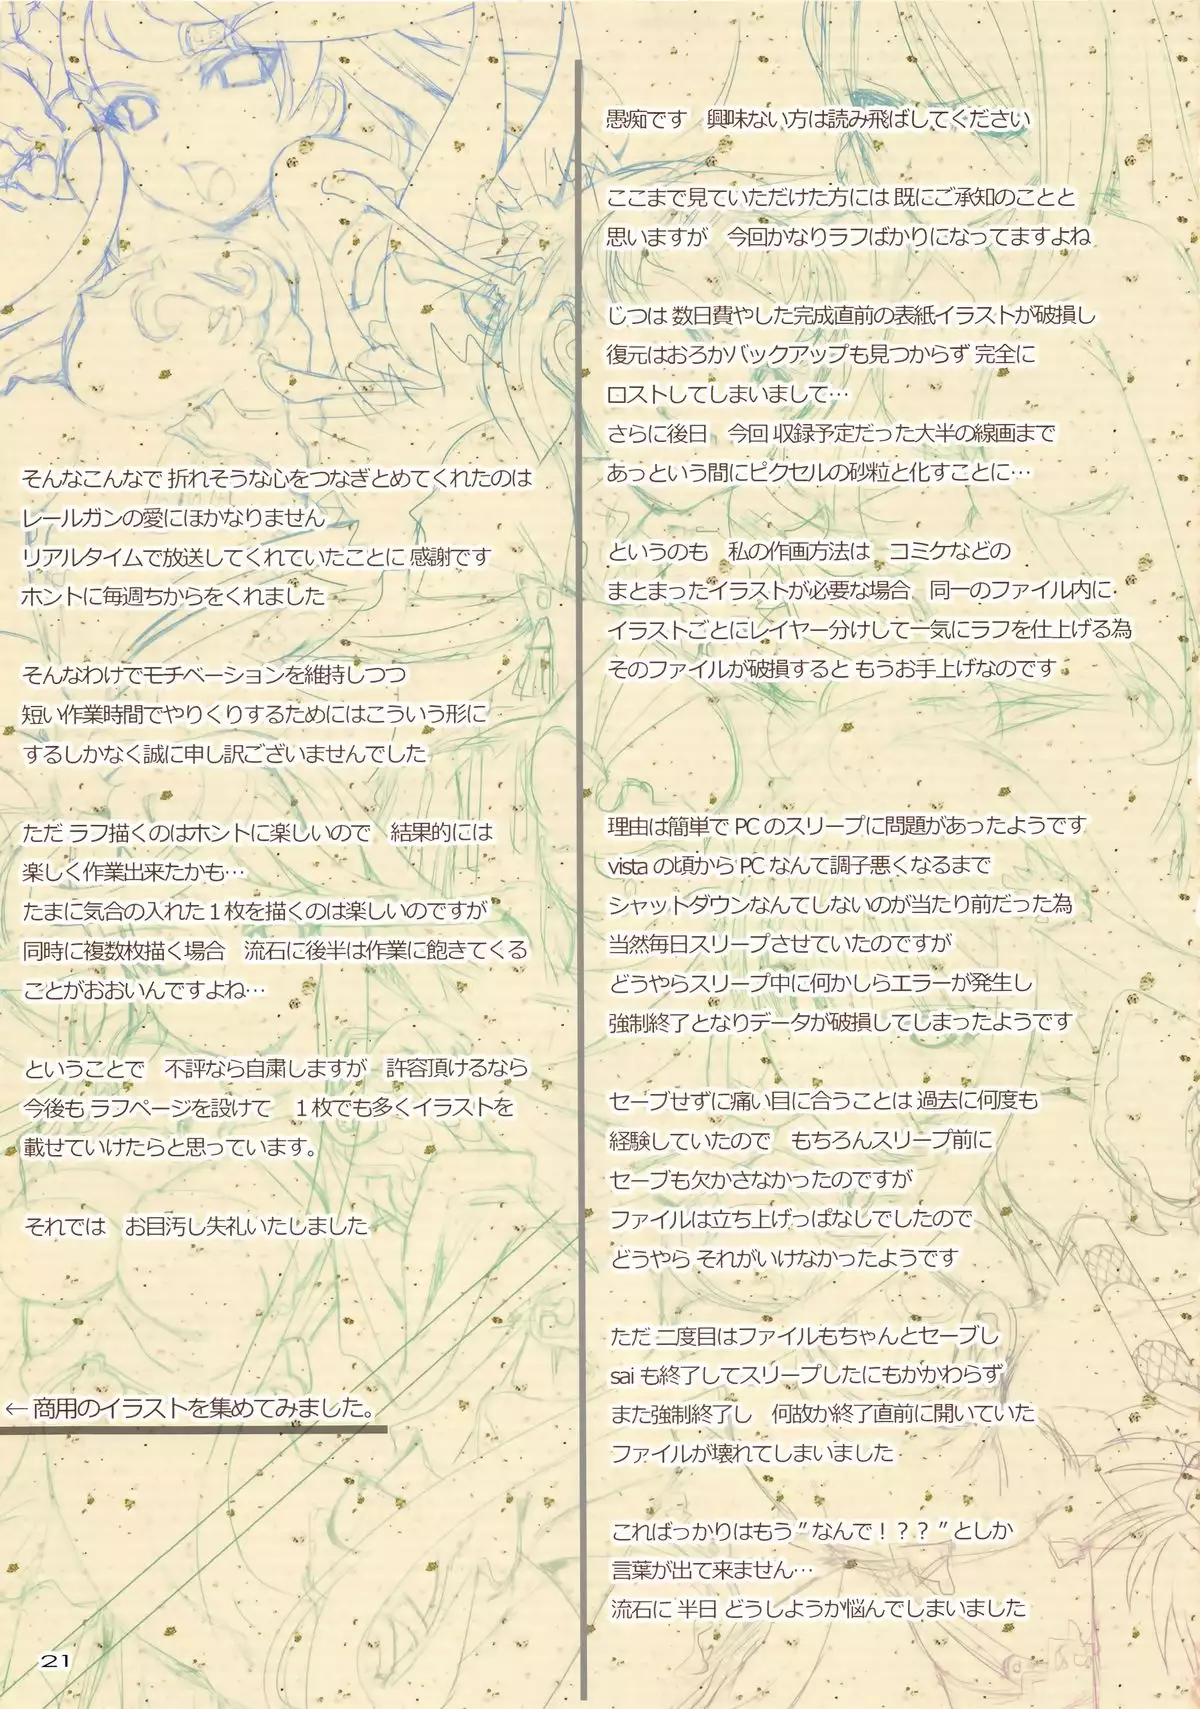 愚痴です　興味ない方は読み飛ばしてください
ここまで見ていただけた方には 既にご承知のことと
思いますが　今回かなりラフばかりになってますよね
じつは 数日費やした完成直前の表紙イラストが破損し
復元はおろかバックアップも見つからず 完全に
ロストしてしまいまして…
さらに後日　今回 収録予定だった大半の線画まで
あっという間にピクセルの砂粒と化すことに…
というのも　私の作画方法は　コミケなどの
まとまったイラストが必要な場合　同一のファイル内に
イラストごとにレイヤー分けして一気にラフを仕上げる為
そのファイルが破損すると もうお手上げなのです
理由は簡単で PC のスリープに問題があったようです
vista の頃から PC なんて調子悪くなるまで
シャットダウンなんてしないのが当たり前だった為
当然毎日スリープさせていたのですが
どうやらスリープ中に何かしらエラーが発生し
強制終了となりデータが破損してしまったようです
セーブせずに痛い目に合うことは 過去に何度も
経験していたので　もちろんスリープ前に
セーブも欠かさなかったのですが
ファイルは立ち上げっぱなしでしたので
どうやら それがいけなかったようです
ただ 二度目はファイルもちゃんとセーブし
sai も終了してスリープしたにもかかわらず
また強制終了し　何故か終了直前に開いていた
ファイルが壊れてしまいました
こればっかりはもう”なんで！？？”としか
言葉が出て来ません…
流石に 半日 どうしようか悩んでしまいました
そんなこんなで 折れそうな心をつなぎとめてくれたのは
レールガンの愛にほかなりません
リアルタイムで放送してくれていたことに 感謝です
ホントに毎週ちからをくれました
そんなわけでモチベーションを維持しつつ
短い作業時間でやりくりするためにはこういう形に
するしかなく誠に申し訳ございませんでした
ただ ラフ描くのはホントに楽しいので　結果的には
楽しく作業出来たかも…
たまに気合の入れた１枚を描くのは楽しいのですが
同時に複数枚描く場合　流石に後半は作業に飽きてくる
ことがおおいんですよね…
ということで　不評なら自粛しますが　許容頂けるなら
今後も ラフページを設けて　１枚でも多くイラストを
載せていけたらと思っています。
それでは　お目汚し失礼いたしました
←商用のイラストを集めてみました。
21